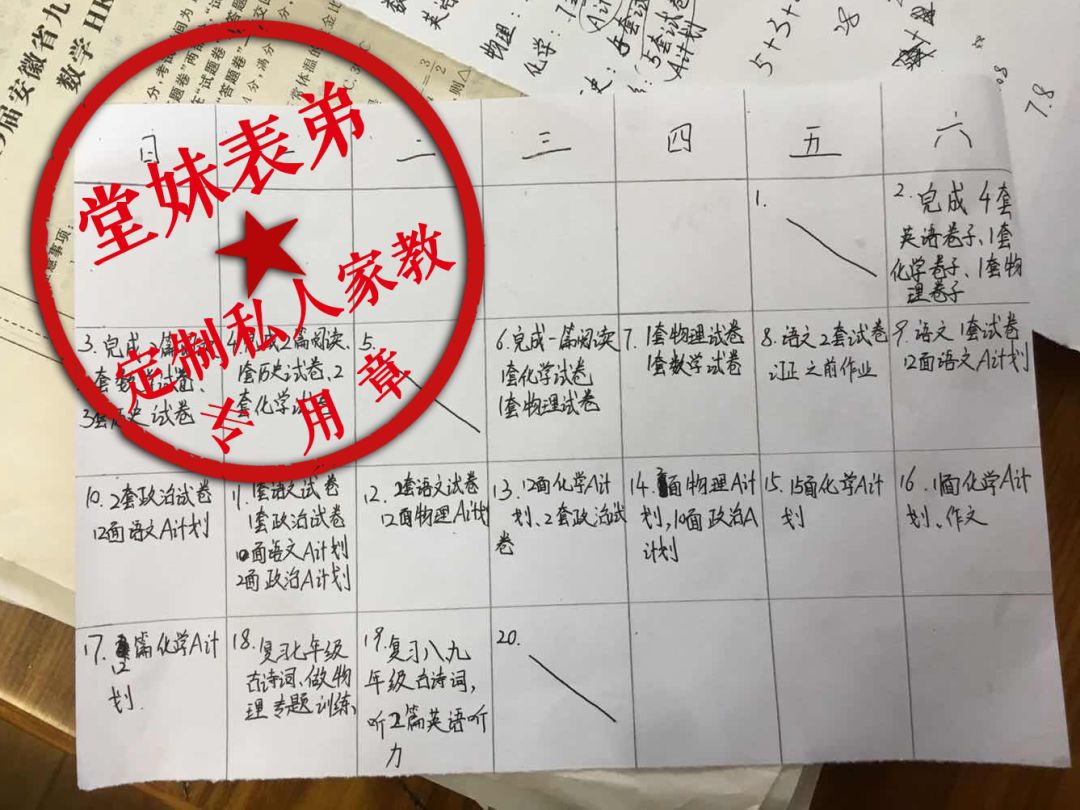 届安徽省九
数学
物理：
化学：
5套试卷
A计划
5+3+
28
7.8
堂妹表弟
定制私人家教
专用章
日
二
三
四
五
六
1.
2.完成 4套
英语卷子、1套
化学卷子、1套物
理卷子
3.完成
套数学试卷、
3套历史试卷
4.完成2篇阅读、
1套历史试卷、2
套化学试卷
5.
6.完成一篇阅读
1套化学试卷
1套物理试卷
7.1套物理试卷
1套数学试卷
8.语文2套试卷
订正之前作业
9.语文1套试卷
12面语文A计划
10.2套政治试卷
12面语文A计划
11.1套语文试卷
1套政治试卷
10面语文A计划
2面政治A计划
12.2套语文试卷
12面物理A计划
13.12面化学A计
划、2套政治试
卷
14.面物理A计
划,10面政治A
计划
15.15面化学A计
划
16.11面化学A计
划、作文
17.12篇化学A计
划.
18.复习七年级
古诗词、做物
理专题训练、
19.复习八、九
年级古诗词,
听2篇英语听
力
20.